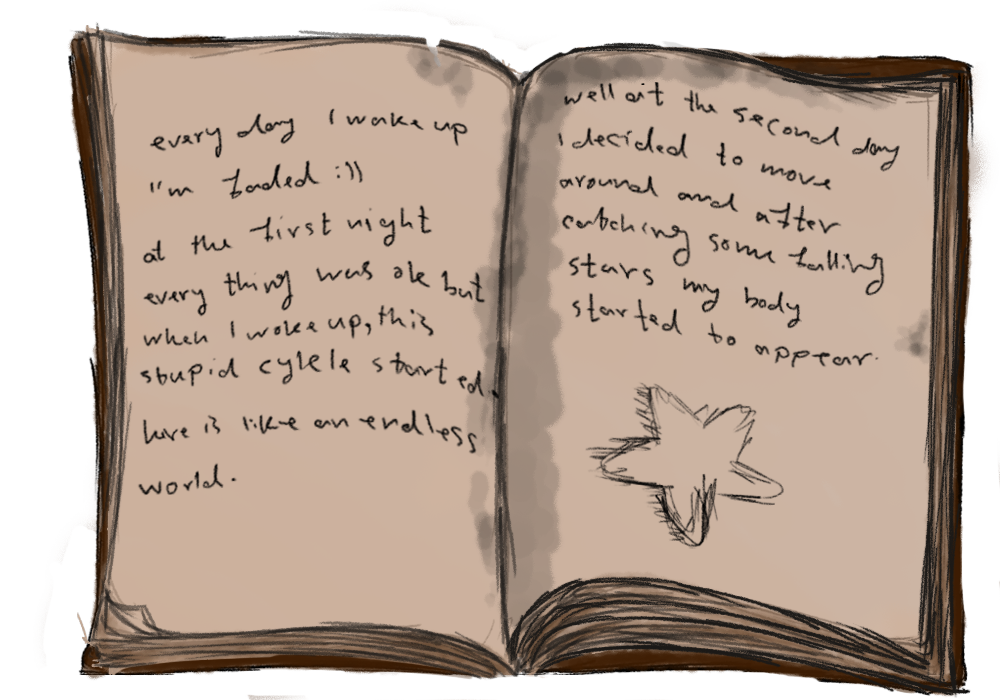 every day I wake up
I'm faded :))
at the first night
every thing was ok but
when I woke up, this
stupid cylcle started.
here is like an endless
world.
well at the second day
I decided to move
around and after
catching some falling
stars my body
started to appear.